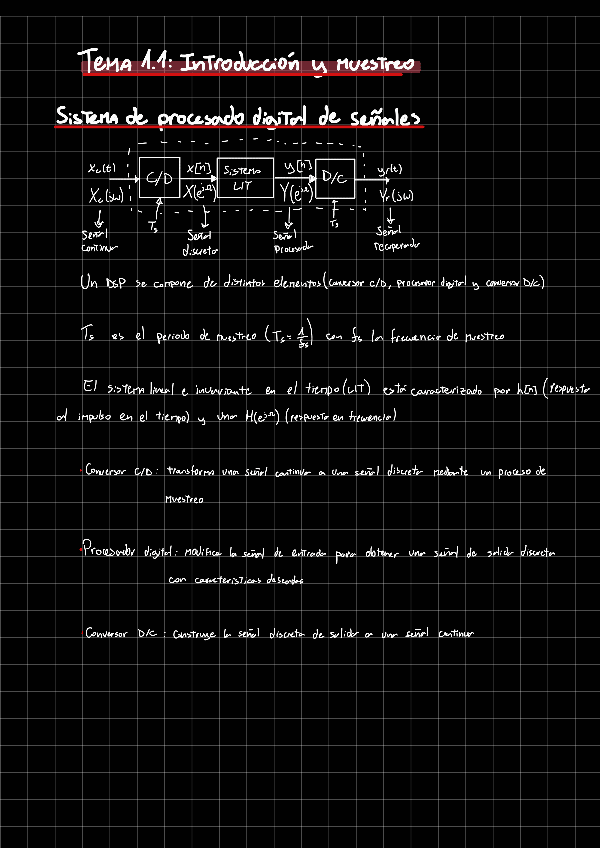 TEMA 1.1: Introducción y muestreo
Sistema de procesado digital de señales
xc(t) x[n] y[n] yr(t)
C/D Sistema LIT D/C
Xc(jω) X(e^jΩ) Y(e^jΩ) Yr(jω)
Ts Ts
Señal continua Señal discreta Señal procesada Señal recuperada
Un DSP se compone de distintos elementos (conversor C/D, procesador digital y conversor D/C)
Ts es el periodo de muestreo (Ts = 1/fs) con fs la frecuencia de muestreo
El sistema lineal e invariante en el tiempo (LIT) está caracterizado por h[n] (respuesta
al impulso en el tiempo) y una H(e^jΩ) (respuesta en frecuencia)
· Conversor C/D: transforma una señal continua a una señal discreta mediante un proceso de
muestreo
· Procesador digital: modifica la señal de entrada para obtener una señal de salida discreta
con características deseadas
Conversor D/C: Construye la señal discreta de salida a una señal continua